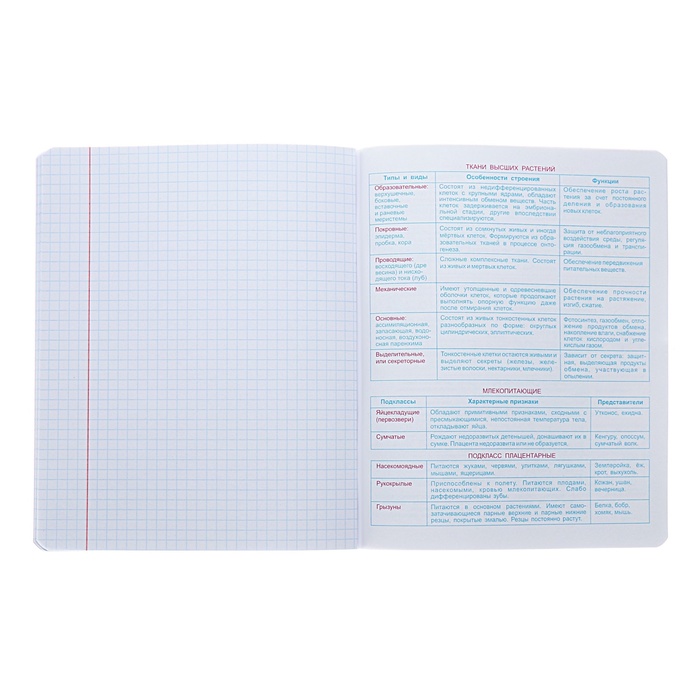 ТКАНИ ВЫСШИХ РАСТЕНИЙ
Типы и виды Особенности строения Функции
Образовательные: Состоят из недифференцированных Обеспечение роста рас-
верхушечные, клеток с крупными ядрами, обладают тения за счет постоянного
боковые, интенсивным обменом веществ. Часть деления и образования
вставочные клеток задерживается на эмбрио- новых клеток.
и раневые нальной стадии, другие впоследствии
меристемы специализируются.
Покровные: Состоят из сомкнутых живых и иногда Защита от неблагоприятного
эпидерма, мертвых клеток. Формируются из обра- воздействия среды, регуля-
пробка, кора зовательных тканей в процессе онто- ция газообмена и транспи-
генеза. рации.
Проводящие: Сложные комплексные ткани. Состоят Обеспечение передвижения
восходящего (дре из живых и мертвых клеток. питательных веществ.
весина) и нисхо-
дящего тока (луб)
Механические Имеют утолщенные и одревесневшие Обеспечение прочности
оболочки клеток, которые продолжают растения на растяжение,
выполнять опорную функцию даже изгиб, сжатие.
после отмирания клеток.
Основные: Состоят из живых тонкостенных клеток Фотосинтез, газообмен, отло-
ассимиляционная, разнообразных по форме: округлых жение продуктов обмена,
запасающая, водо- цилиндрических, эллиптических. накопление влаги, снабжение
носная, воздухонос- клеток кислородом и угле-
ная паренхима кислым газом.
Выделительные, Тонкостенные клетки остаются живыми и Зависит от секрета: защит-
или секреторные выделяют секреты (железы, желе- ная, выделяющая продукты
зистые волоски, нектарники, млечники). обмена, участвующая в
опылении.
МЛЕКОПИТАЮЩИЕ
Подклассы Характерные признаки Представители
Яйцекладущие Обладают примитивными признаками, сходными с Утконос, ехидна.
(первозвери) пресмыкающимися, непостоянная температура тела,
откладывают яйца.
Сумчатые Рождают недоразвитых детенышей, донашивают их в Кенгуру, опоссум,
сумке. Плацента недоразвита или не образуется. сумчатый волк.
ПОДКЛАСС ПЛАЦЕНТАРНЫЕ
Насекомоядные Питаются жуками, червями, улитками, лягушками, Землеройка, ёж,
мышами, ящерицами. крот, выхухоль.
Рукокрылые Приспособлены к полету. Питаются плодами, Кожан, ушан,
насекомыми, кровью млекопитающих. Слабо вечерница.
дифференцированы зубы.
Грызуны Питаются в основном растениями. Имеют само- Белка, бобр,
затачивающиеся парные верхние и парные нижние хомяк, мышь.
резцы, покрытые эмалью. Резцы постоянно растут.